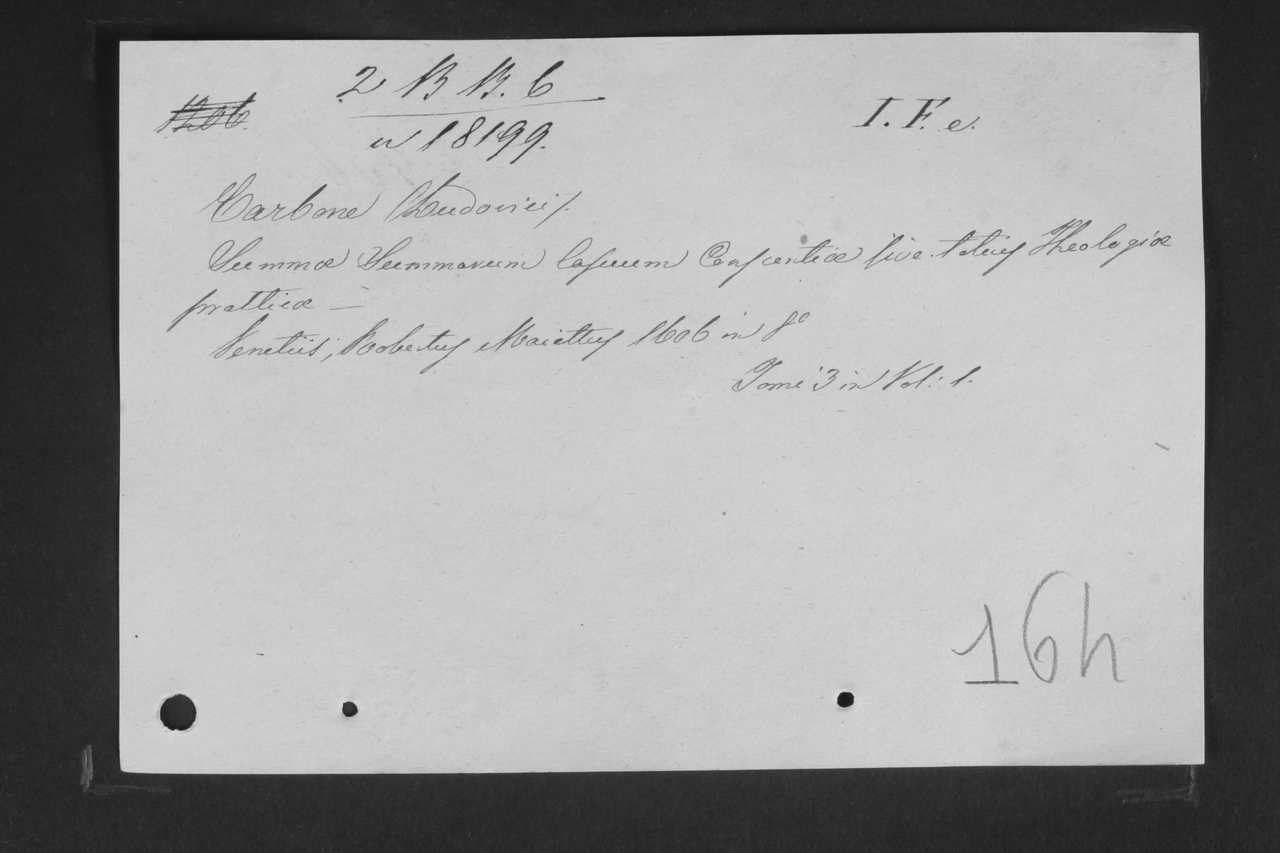 2 B B. 6
1606.
I. F. e.
n 18199.
Carbone (Ludovici).
Summæ Summarum Casuum Conscientiæ sive totius Theologiæ
pratticæ —
Venetiis, Robertus Maiettus 1606 in 8º
Tomi 3 in Vol: 1.
16h